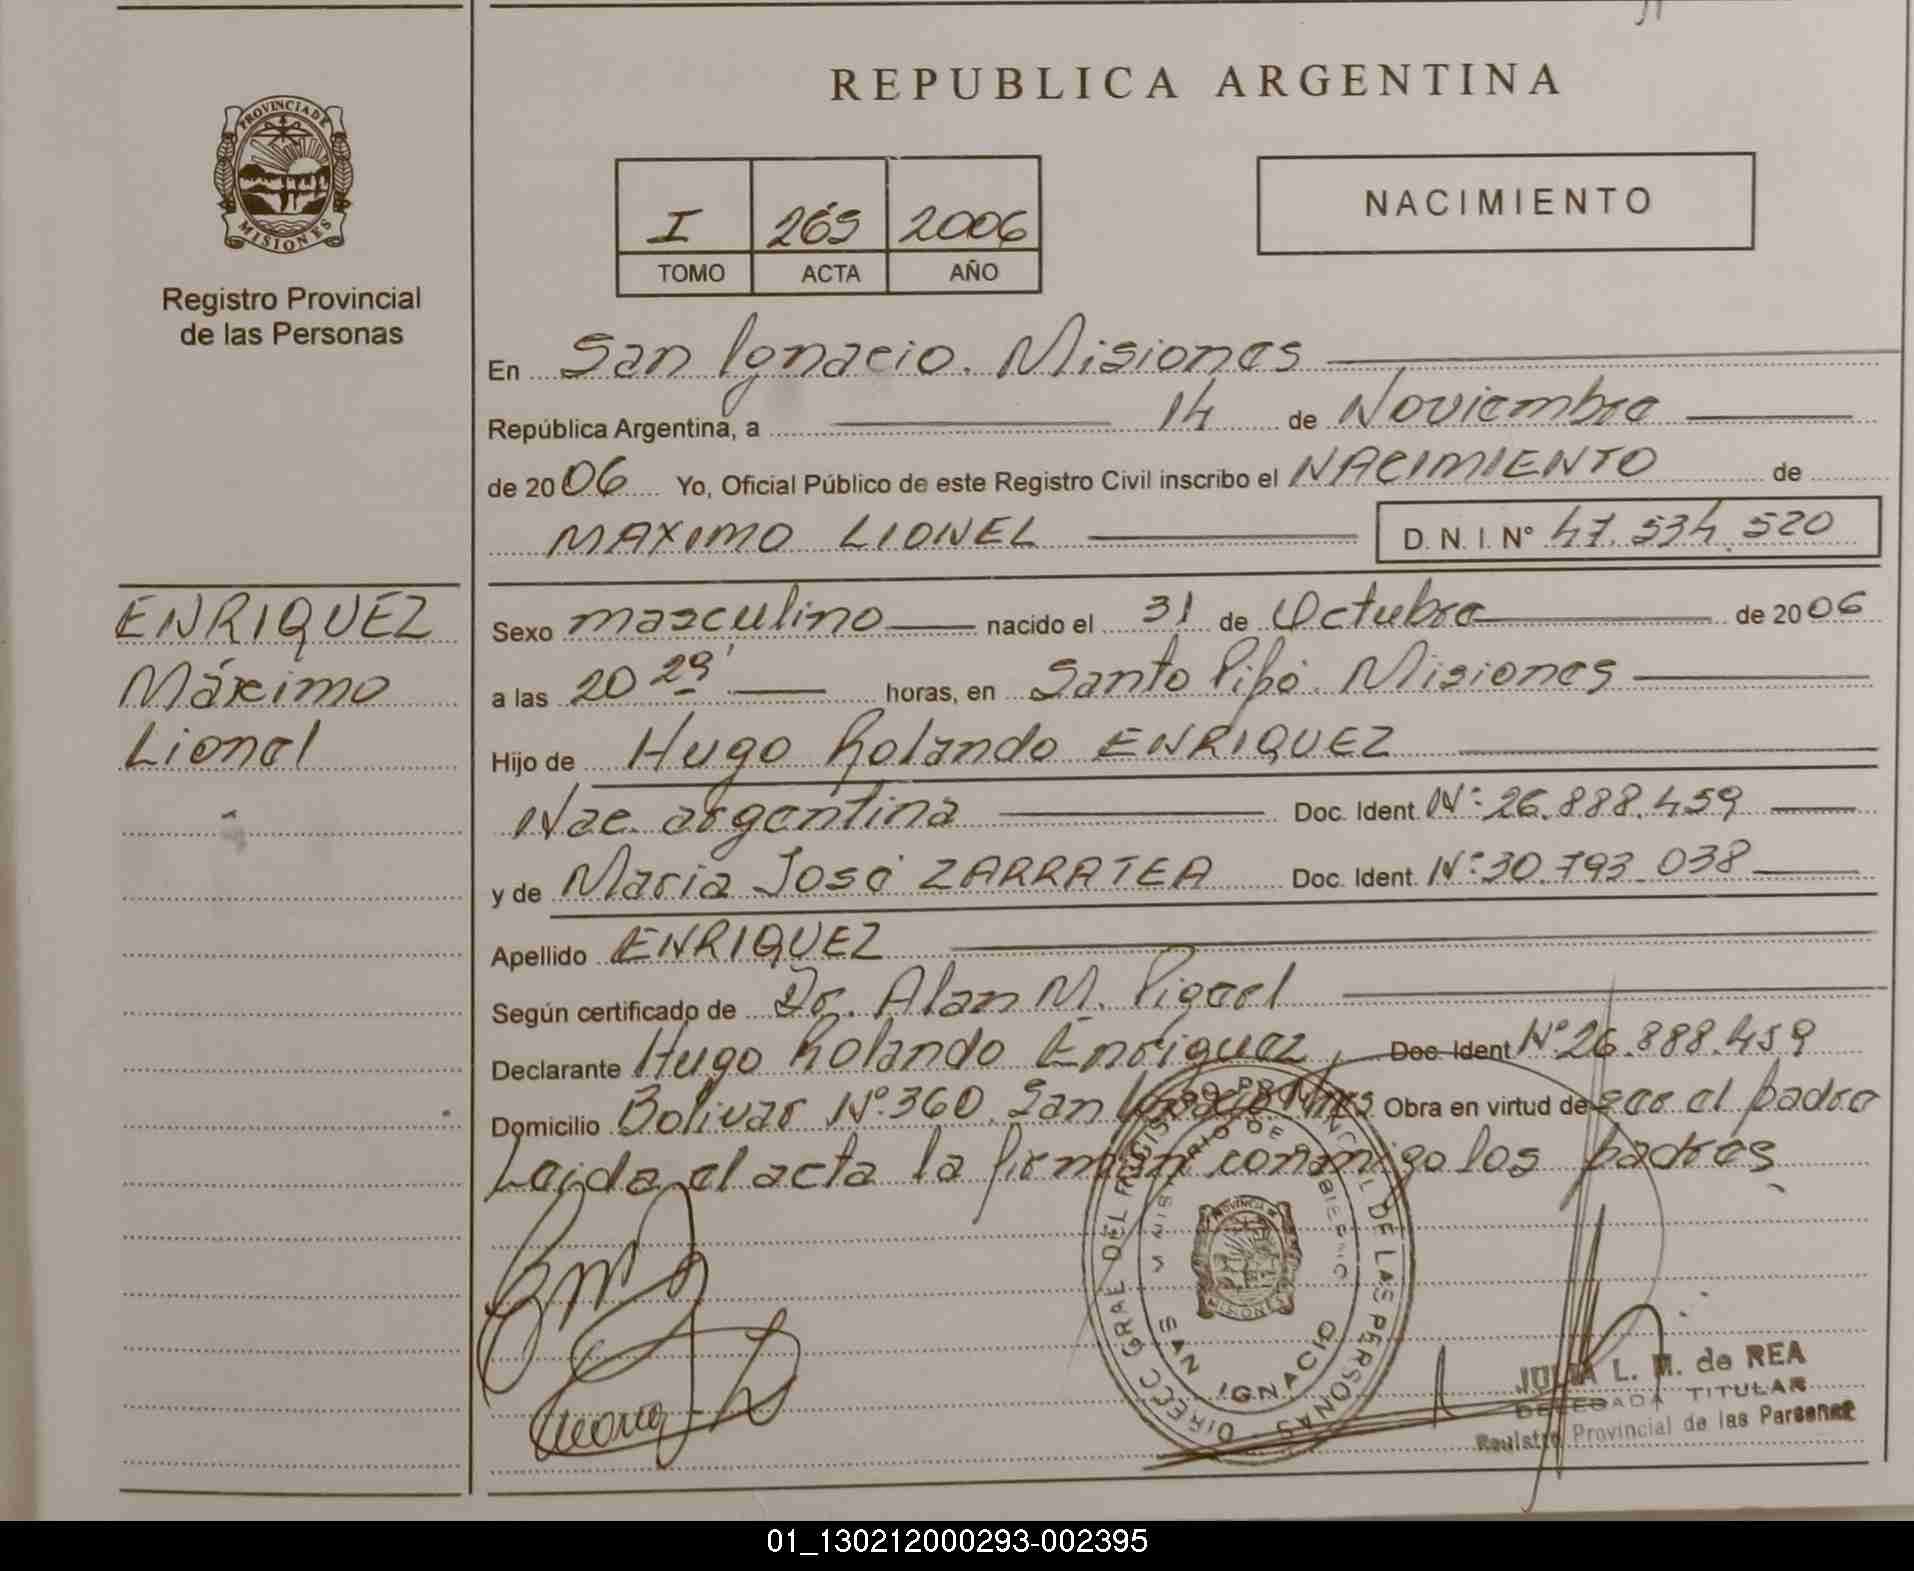 REPUBLICA ARGENTINA
PROVINCIA DE
MISIONES
Registro Provincial
de las Personas
I 269 2006
TOMO ACTA AÑO
NACIMIENTO
En San Ignacio. Misiones
República Argentina, a 14 de Noviembre
de 2006 Yo, Oficial Público de este Registro Civil inscribo el NACIMIENTO de
MAXIMO LIONEL D. N. I. N° 47.534.520
ENRIQUEZ
Máximo
Lionel
Sexo masculino nacido el 31 de Octubre de 2006
a las 20 29' horas, en Santo Pipó. Misiones
Hijo de Hugo Rolando ENRIQUEZ
Nac. argentina Doc. Ident. N°: 26.888.459
y de María José ZARRATEA Doc. Ident. N°: 30.793.038
Apellido ENRIQUEZ
Según certificado de Dr. Alan M. Pigerl
Declarante Hugo Rolando Enriquez, Doc. Ident N° 26.888.459
Domicilio Bolivar N° 360. San Ignacio Mnes Obra en virtud de ser el padre
Leida el acta la firman conmigo los padres
DIRECC GRAL DEL REGISTRO PROVINCIAL DE LAS PERSONAS
MINISTERIO DE GOBIERNO
PROVINCIA DE
MISIONES
SAN IGNACIO
JULIA L. M. de REA
DELEGADA TITULAR
Registro Provincial de las Personas
01_130212000293-002395